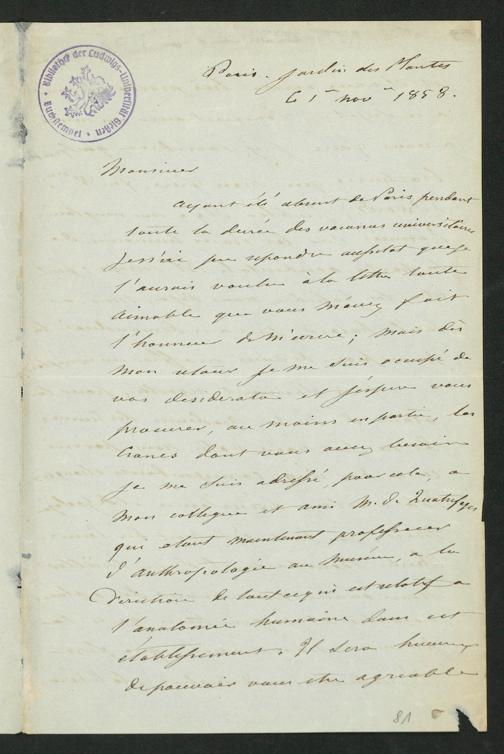 Bibliothek der Ludwigs-Universität Gießen
Buchstempel
Paris. Jardin des Plantes
le 1er nov 1858.
Monsieur
ayant été absent de Paris pendant
toute la durée des vacances universitaires
je n'ai pu repondre aussitot que je
l'aurais voulu à la lettre toute
aimable que vous m'avez fait
l'honneur de m'ecrire; mais dès
mon retour je me suis occupé de
vos desiderata et j'espere vous
procurer, au moins en partie, les
cranes dont vous avez besoin
je me suis adressé, pour cela, a
mon collegue et ami M. de Quatrefages
qui etant maintenant professeur
d'anthropologie au museum, a la
direction de tout ce qui est relatif a
l'anatomie humaine dans cet
établissement. Il sera heureux
de pouvoir vous etre agreable
81